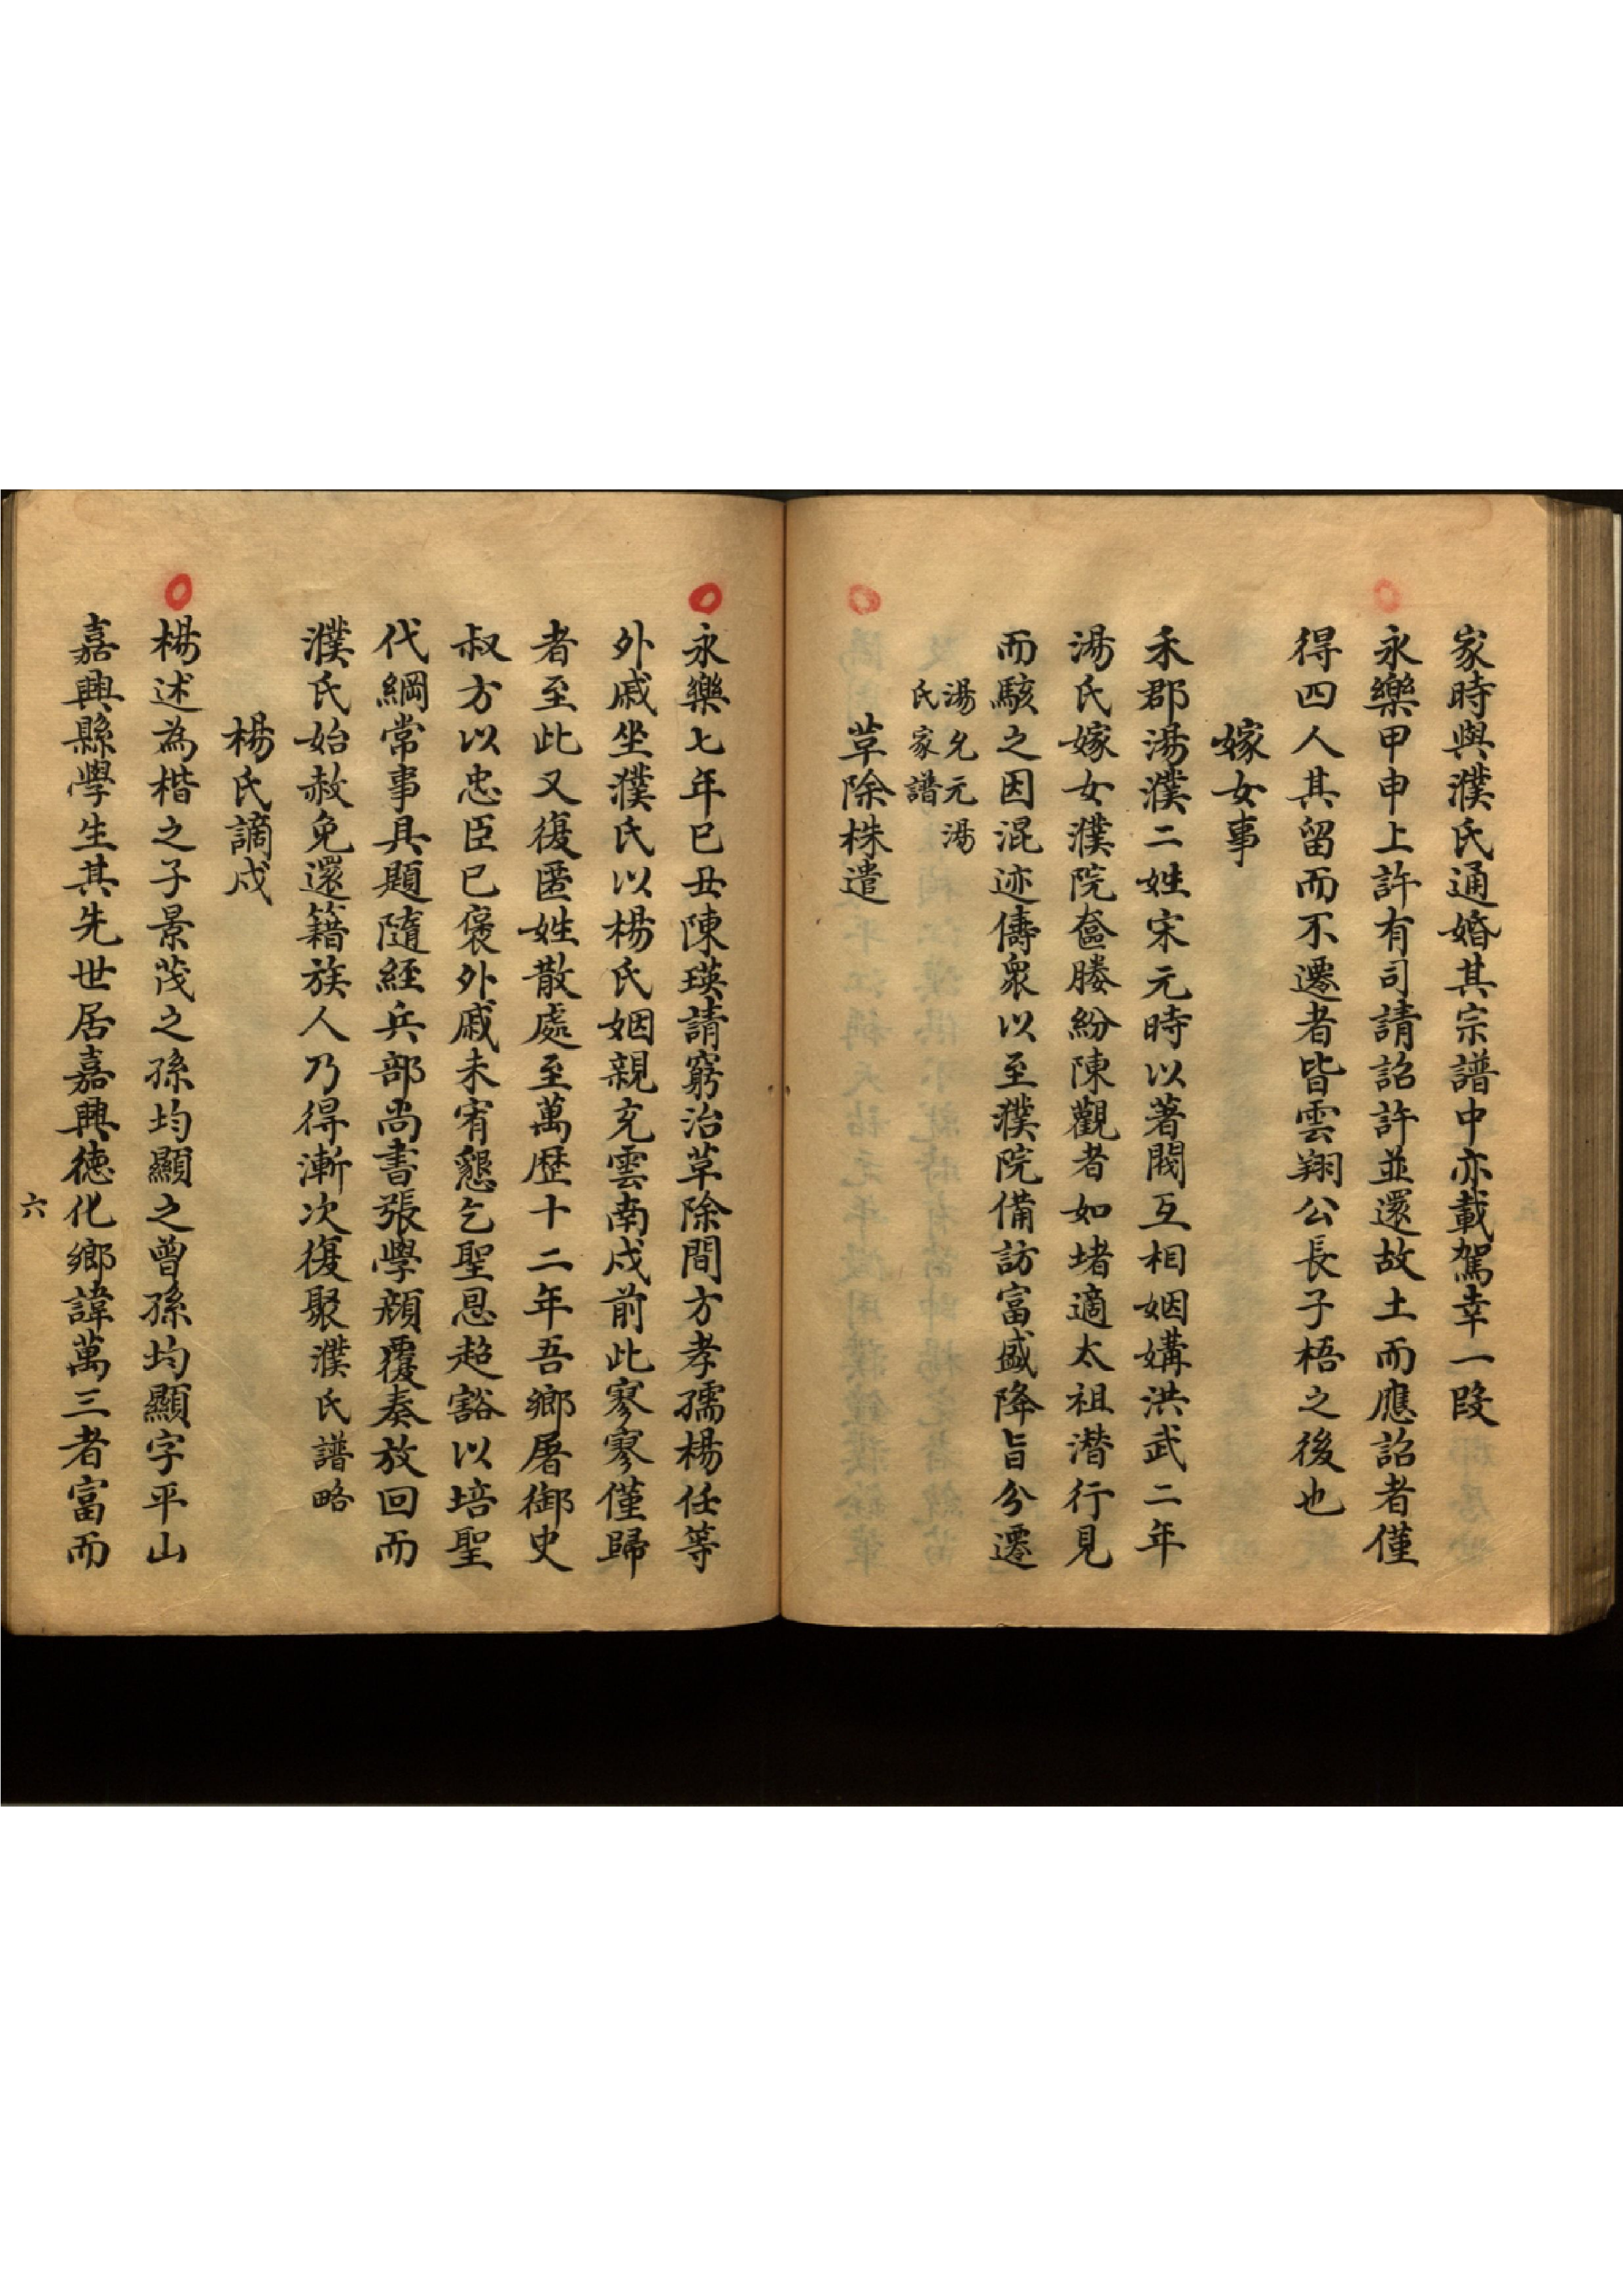 家時與濮氏通婚其宗譜中亦載駕幸一段
永樂甲申上許有司請詔許並還故土而應詔者僅
得四人其留而不遷者皆雲翔公長子梧之後也
嫁女事
禾郡湯濮二姓宋元時以著閥互相姻媾洪武二年
湯氏嫁女濮院奩媵紛陳觀者如堵適太祖潛行見
而駭之因混迹儔眾以至濮院備訪富盛降旨分遷
湯允元湯
氏家譜
草除株遣
永樂七年巳丑陳瑛請窮治草除間方孝孺楊任等
外戚坐濮氏以楊氏姻親充雲南戍前此寥寥僅歸
者至此又復匿姓散處至萬歷十二年吾鄉屠御史
叔方以忠臣已褒外戚未宥懇乞聖恩超豁以培聖
代綱常事具題隨經兵部尚書張學顏覆奏放回而
濮氏始赦免還籍族人乃得漸次復聚濮氏譜略
楊氏謫戍
楊述為楷之子景茂之孫均顯之曾孫均顯字平山
嘉興縣學生其先世居嘉興德化鄉諱萬三者富而
六